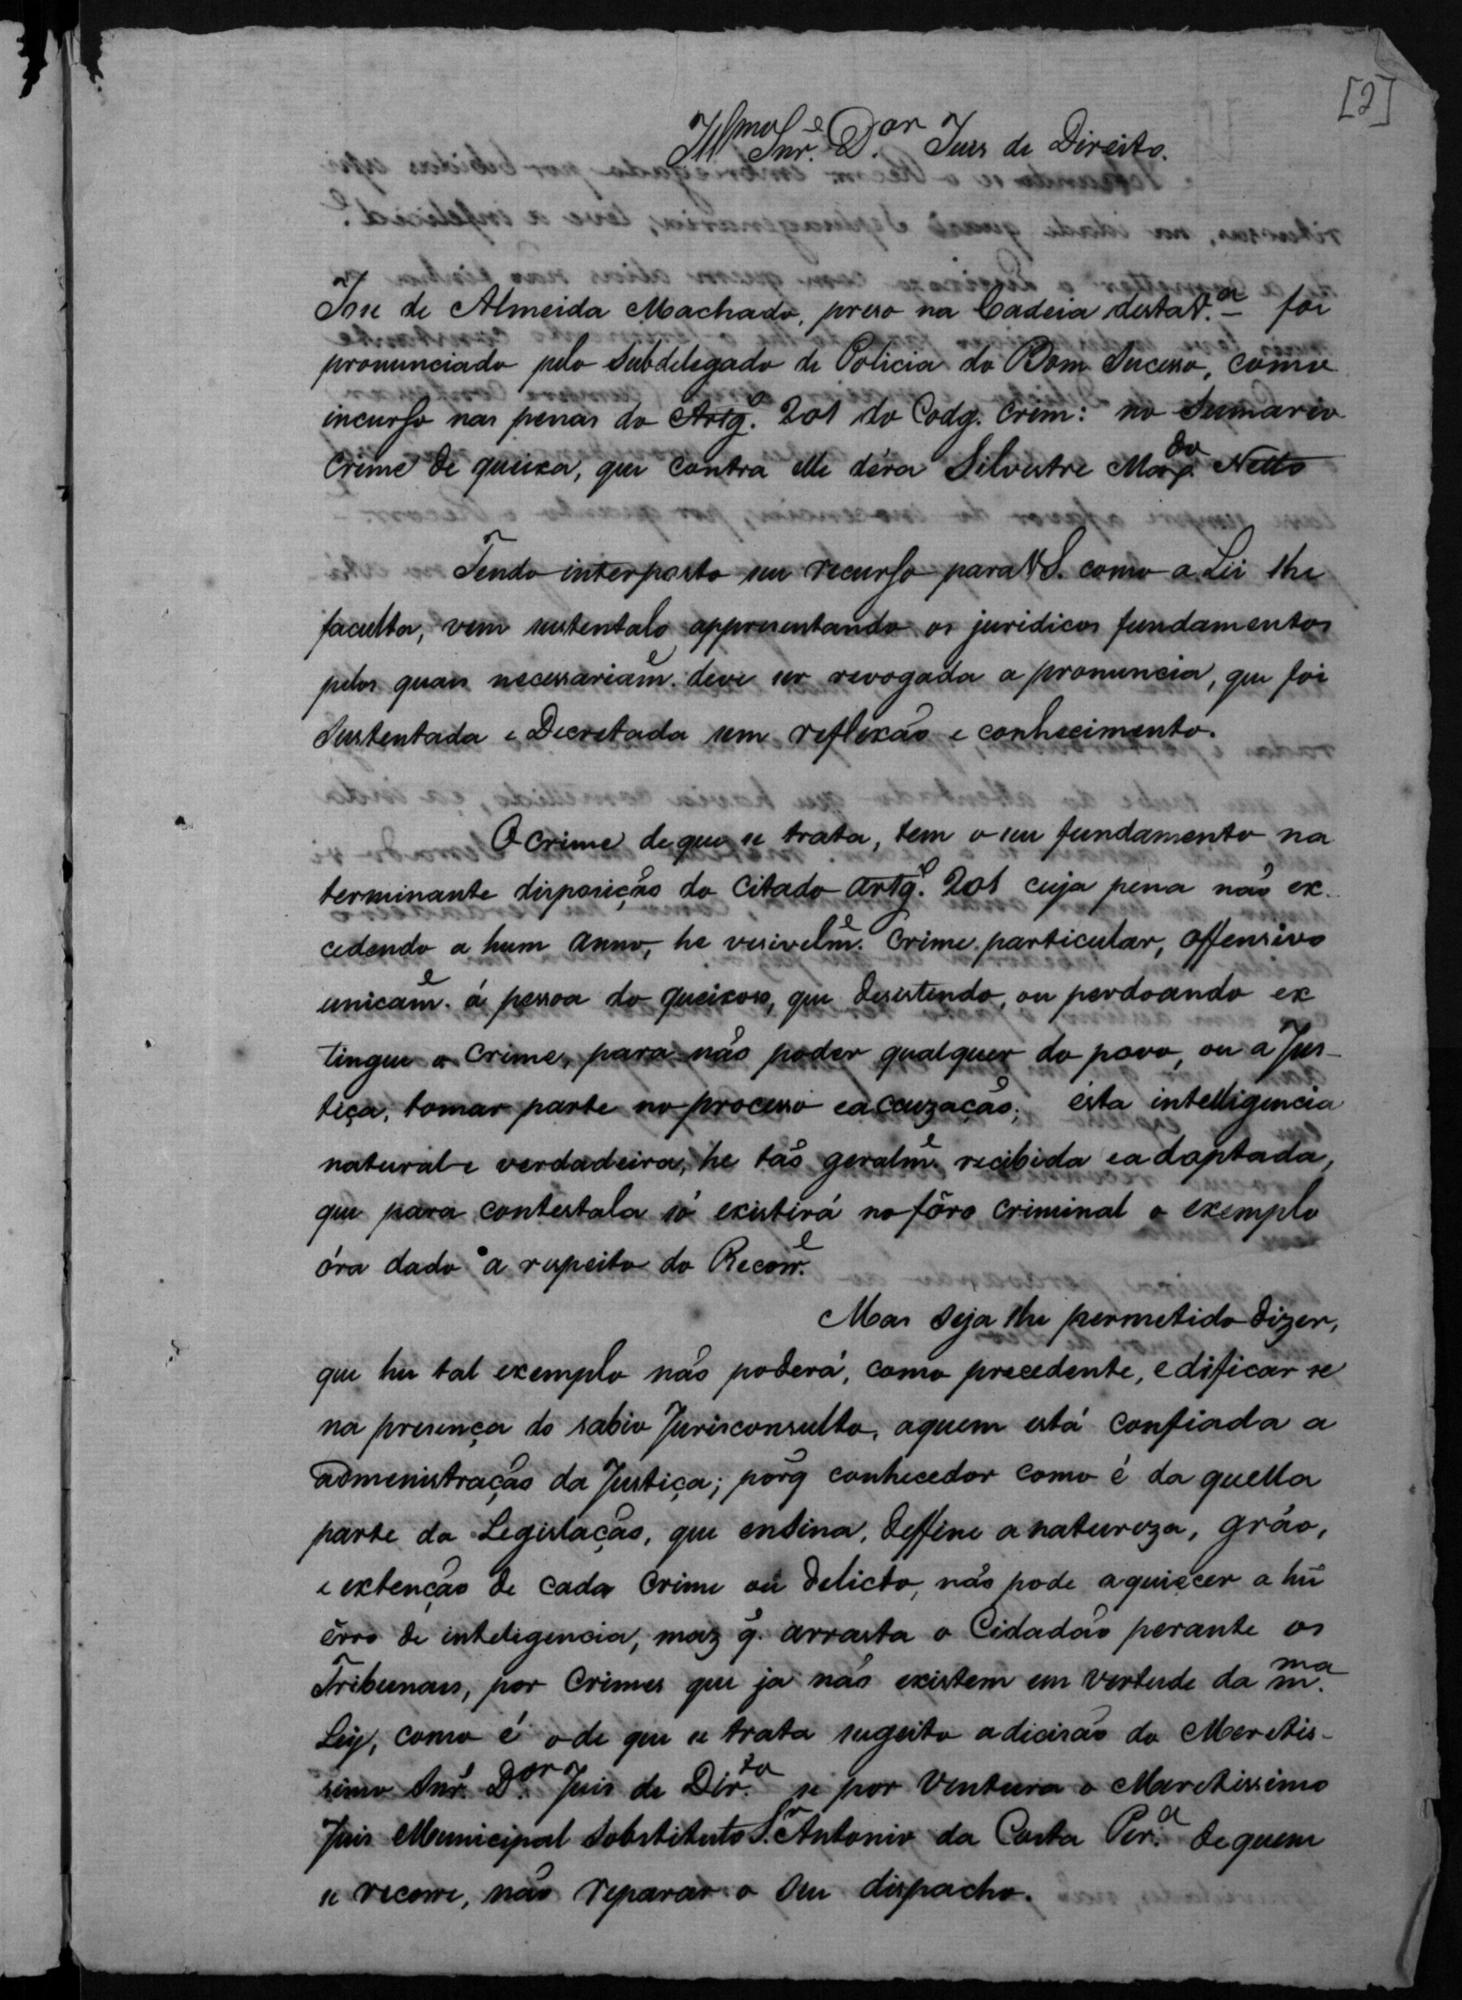 [2]
Illmo Snr.e D.or Juis de Direito.
Jose de Almeida Machado, preso na Cadeia desta V.a foi
pronunciado pelo Subdelegado de Policia do Bom Sucesso, como
incurso nas penas do Artg.o 201 do Codg. Crim: no Sumario
crime de queixa, que contra elle déra Silvestre Mach.do Netto
Tendo interposto seu recurso para V S. como a Lei lhe
faculta, vem sustentalo appresentando os juridicos fundamentos
pelos quais necessariam.e deve ser revogada a pronuncia, que foi
Sustentada e Decretada sem reflexão e conhecimento.
O crime de que se trata, tem o seu fundamento na
terminante disposição do Citado artg.o 201 cuja pena não ex-
cedendo a hum anno, he vesivelm.e crime particular, offensivo
unicam.e á pessoa do queixoso, que desistindo, ou perdoando ex
tingue o crime, para não poder qualquer do povo, ou a Jus-
tiça, tomar parte no processo e accuzação; esta intelligencia
natural e verdadeira, he tão geralm.e recibida e adoptada,
que para contestala só existirá no fôro criminal o exemplo
óra dado a respeito do Recorr.e
Mas seja lhe permetido dizer,
que hu tal exemplo não poderá, como precedente, edificar se
na presença do sabio Jurisconsulto, aquem está confiada a
administração da Justiça; porq conhecedor como é da quella
parte da Legislação, que ensina, deffine a natureza, gráo,
e extenção de cada Crime ou delicto, não pode aquiecer a hũ
êrro de inteligencia, maz q. arrasta o Cidadão perante os
Tribunais, por Crimes que ja não existem em vertude da m.ma
Ley, como é o de que se trata sugeito a dicisão do Meretis-
simo Snr. D.or Juis de Dir.to se por ventura o Meretissimo
Juis Municipal Sobstituto S.r Antonio da Costa Per.a de quem
se recorre, não reparar o seu dispacho.